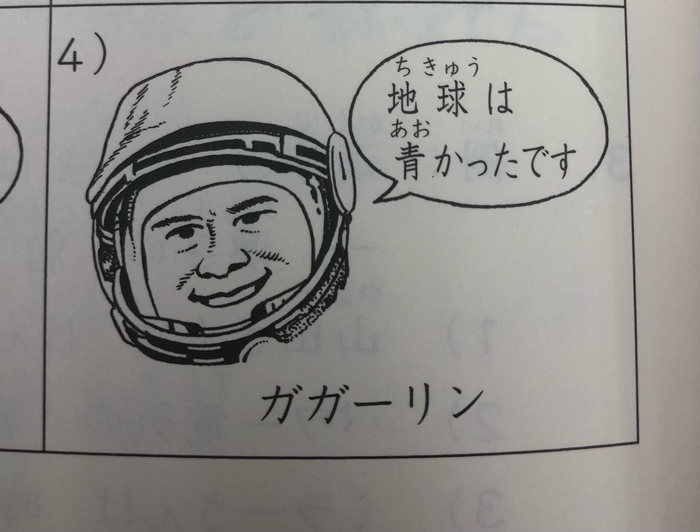 4)
ちきゅう
地球は
あお
青かったです
ガガーリン